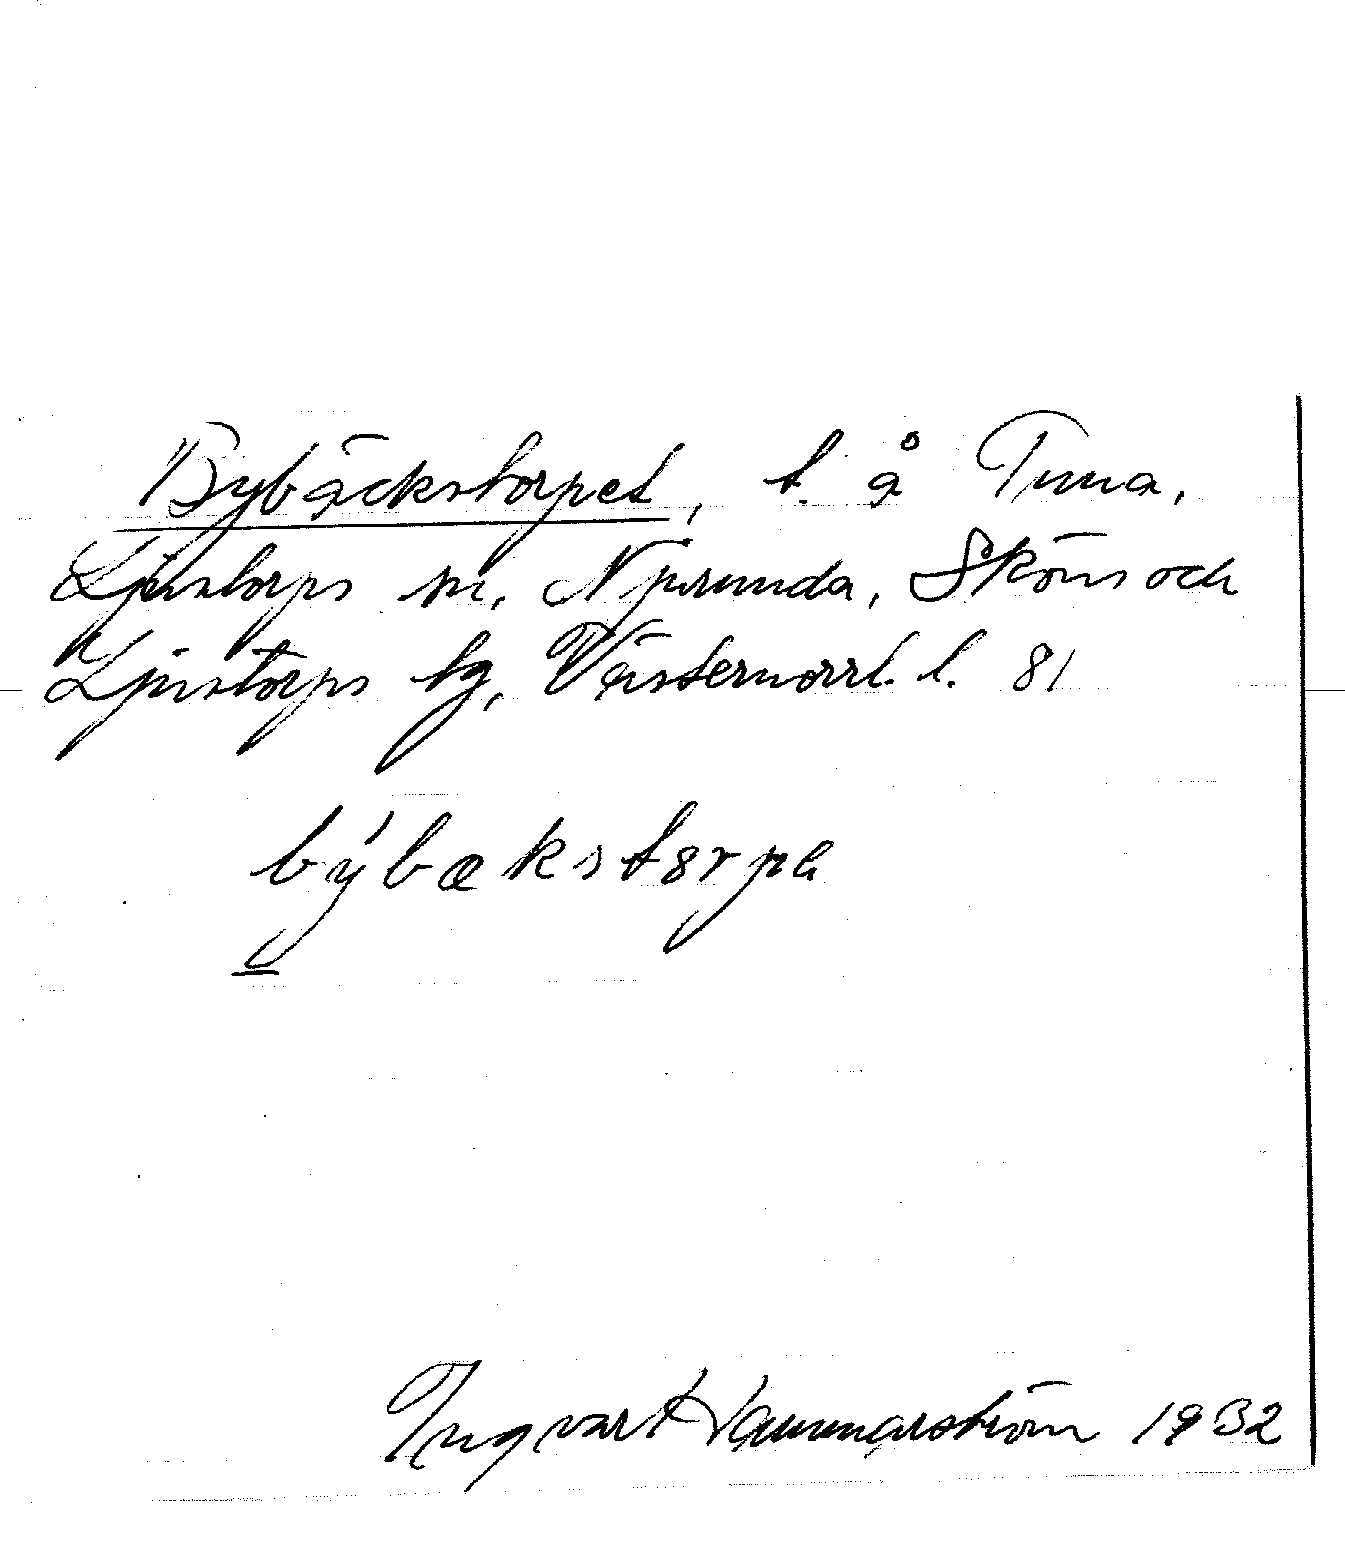 Bybäckstorpet, t. å Tuna,
Ljustorps sn, Njurunda, Sköns och
Ljustorps tg, Västernorrl. l. 81
býbækstørpe
Ingvar Hammarström 1932